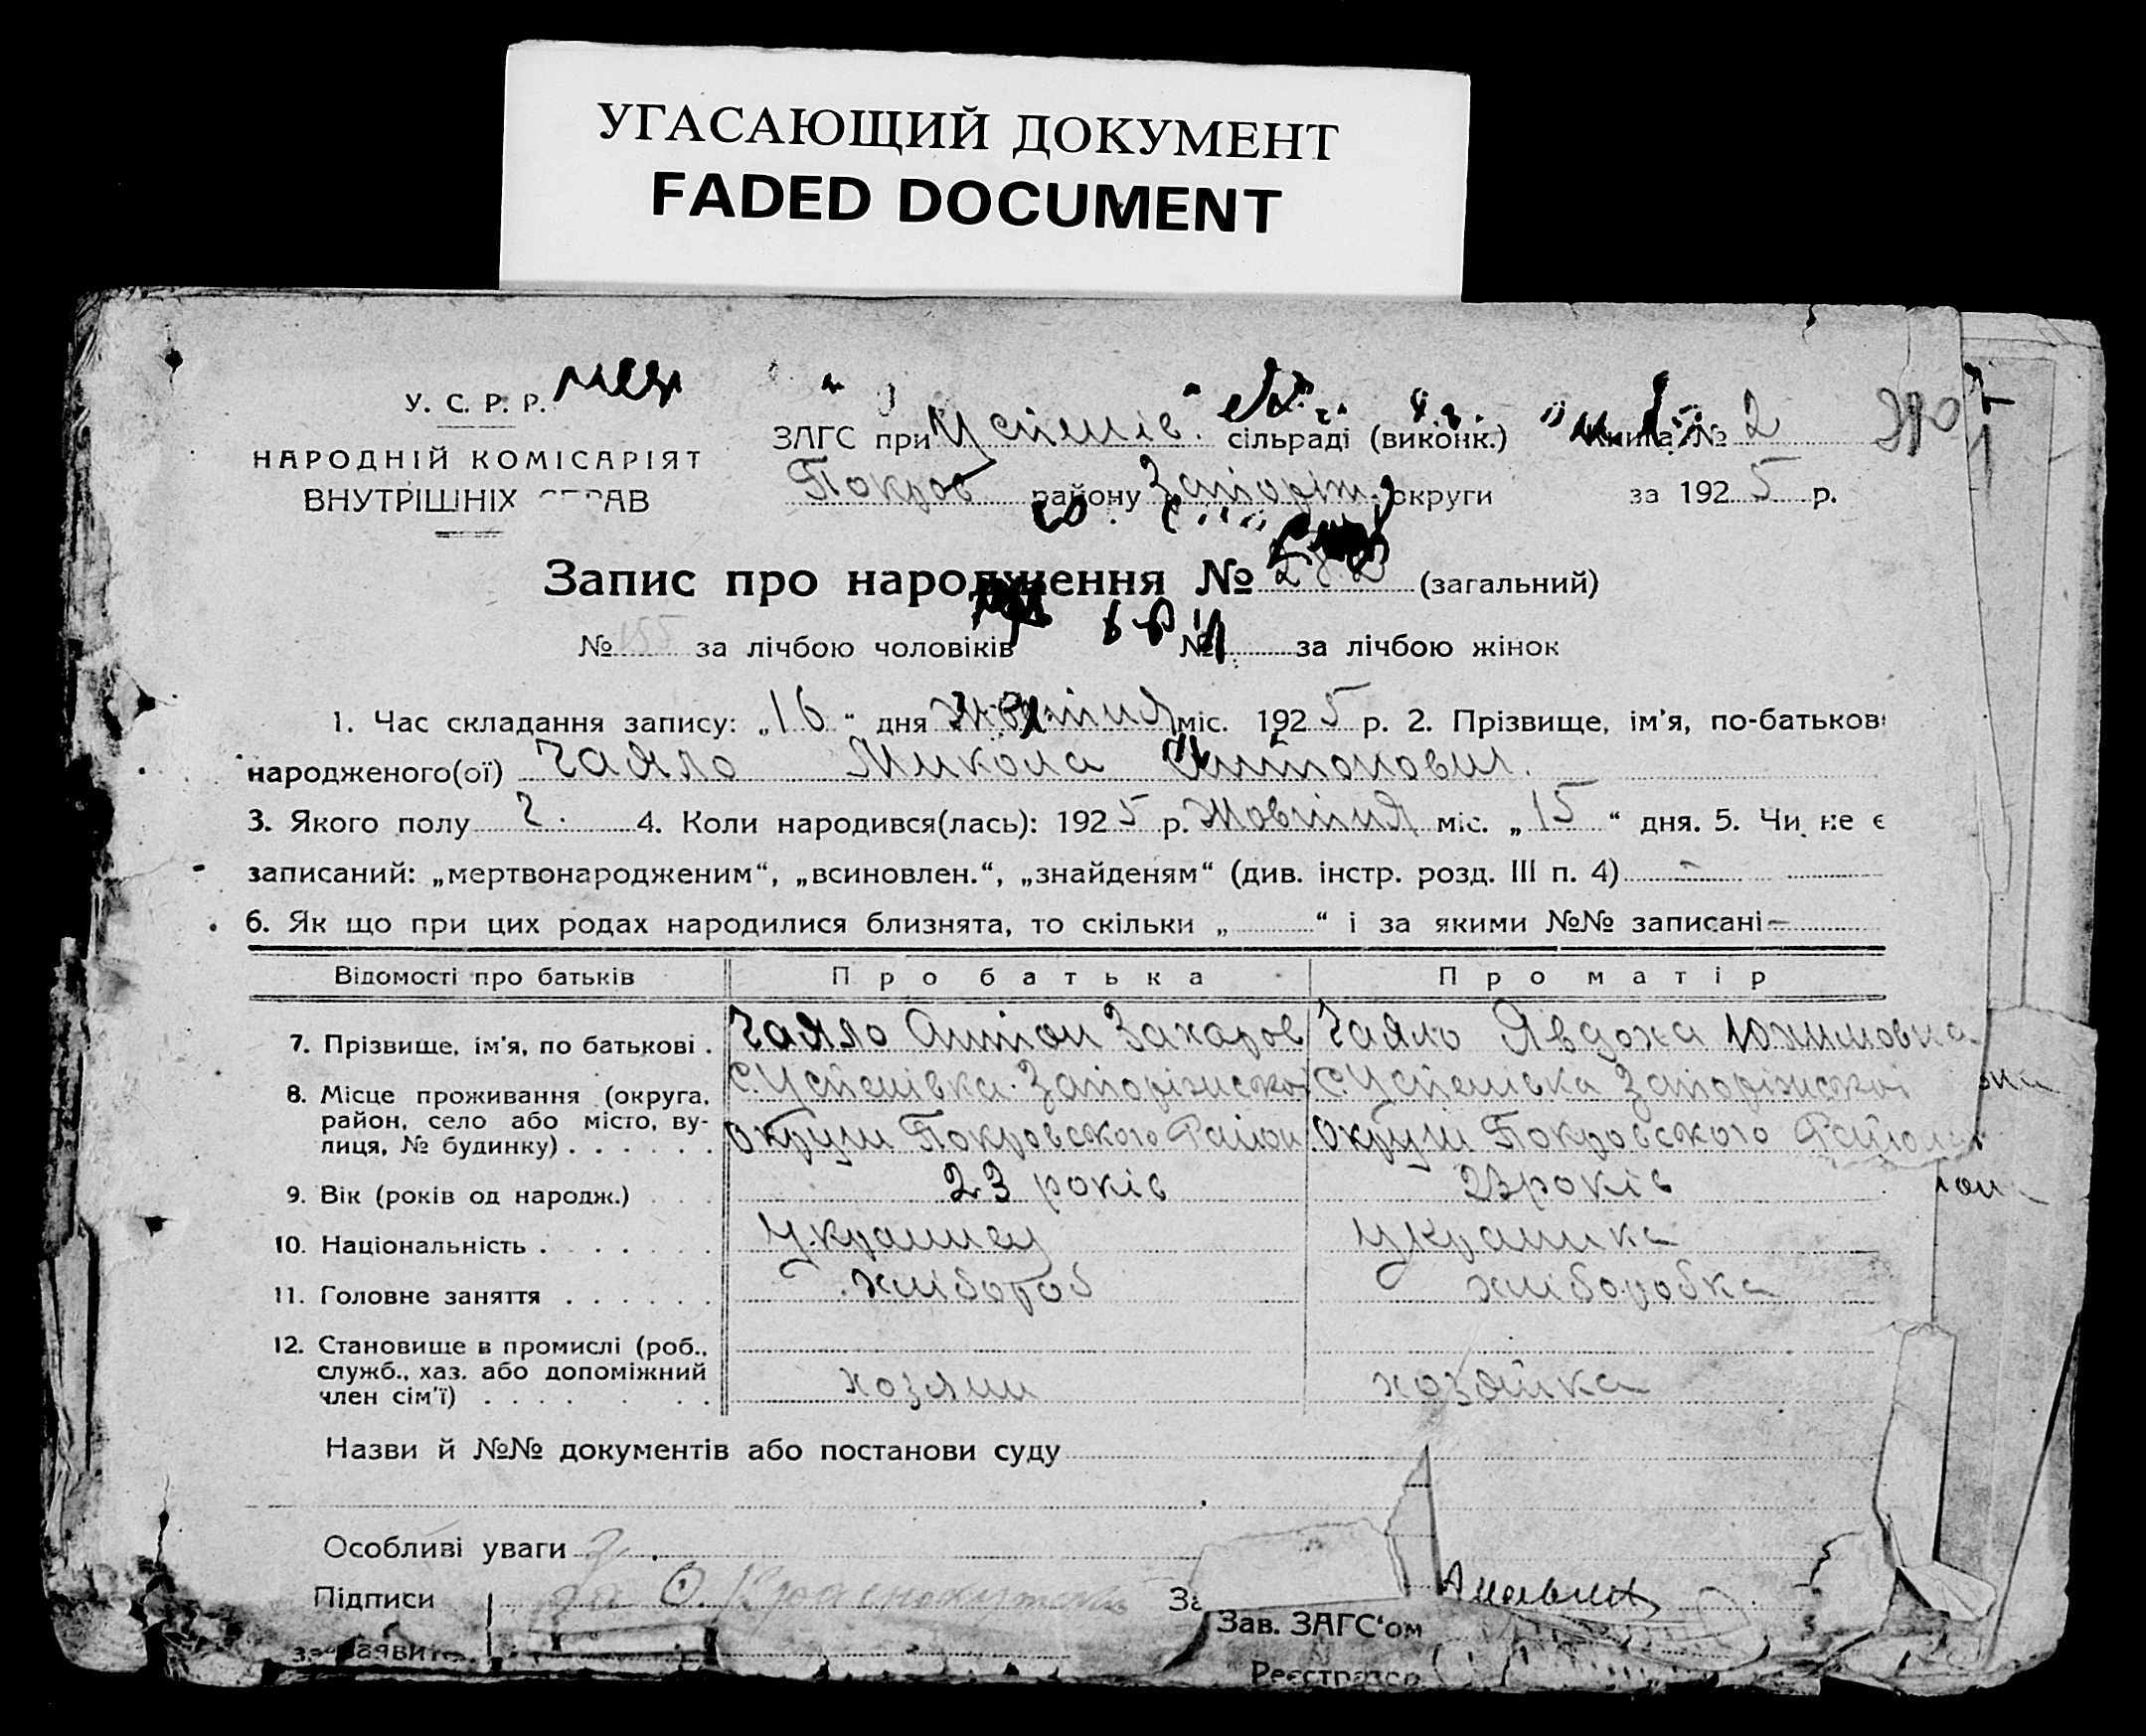 УГАСАЮЩИЙ ДОКУМЕНТ
FADED DOCUMENT
У. С. Р. Р.
НАРОДНІЙ КОМІСАРІЯТ
ВНУТРІШНІХ СПРАВ
ЗАГС при Успенів. сільраді (виконк.) Книга № 2
Покров району Запоріж. округи за 1925 р.
Запис про народження № 282 (загальний)
№ 155 за лічбою чоловіків № за лічбою жінок
1. Час складання запису: „16“ дня Жовтня міс. 1925 р. 2. Прізвище, ім'я, по-батькові
народженого(ої) Чаяло Микола Антонович.
3. Якого полу ч. 4. Коли народився(лась): 1925 р. Жовтня міс. „15“ дня. 5. Чи не є
записаний: „мертвонародженим“, „всиновлен.“, „знайденям“ (див. інстр. розд. III п. 4) -
6. Як що при цих родах народилися близнята, то скільки „ “ і за якими №№ записані -
Відомості про батьків Про батька Про матір
7. Прізвище, ім'я, по батькові . Чаяло Антон Захаров Чаяло Явдоха Юхимовна
8. Місце проживання (округа, район, село або місто, вулиця, № будинку) . . . . . . с. Успенівка Запоріжської округи Покровського Район с. Успенівка Запоріжської округи Покровського Району
9. Вік (років од народж.) . . . 23 років 23 років
10. Національність . . . . . . Українец Українка
11. Головне заняття . . . . . . хлібороб хліборобка
12. Становище в промислі (роб., служб., хаз. або допоміжний член сім'ї) . . . . . . хозяин хозяйка
Назви й №№ документів або постанови суду
Особливі уваги
Підписи за О. Краснокутський
заявит.
Зав. ЗАГС'ом
Реєстратор